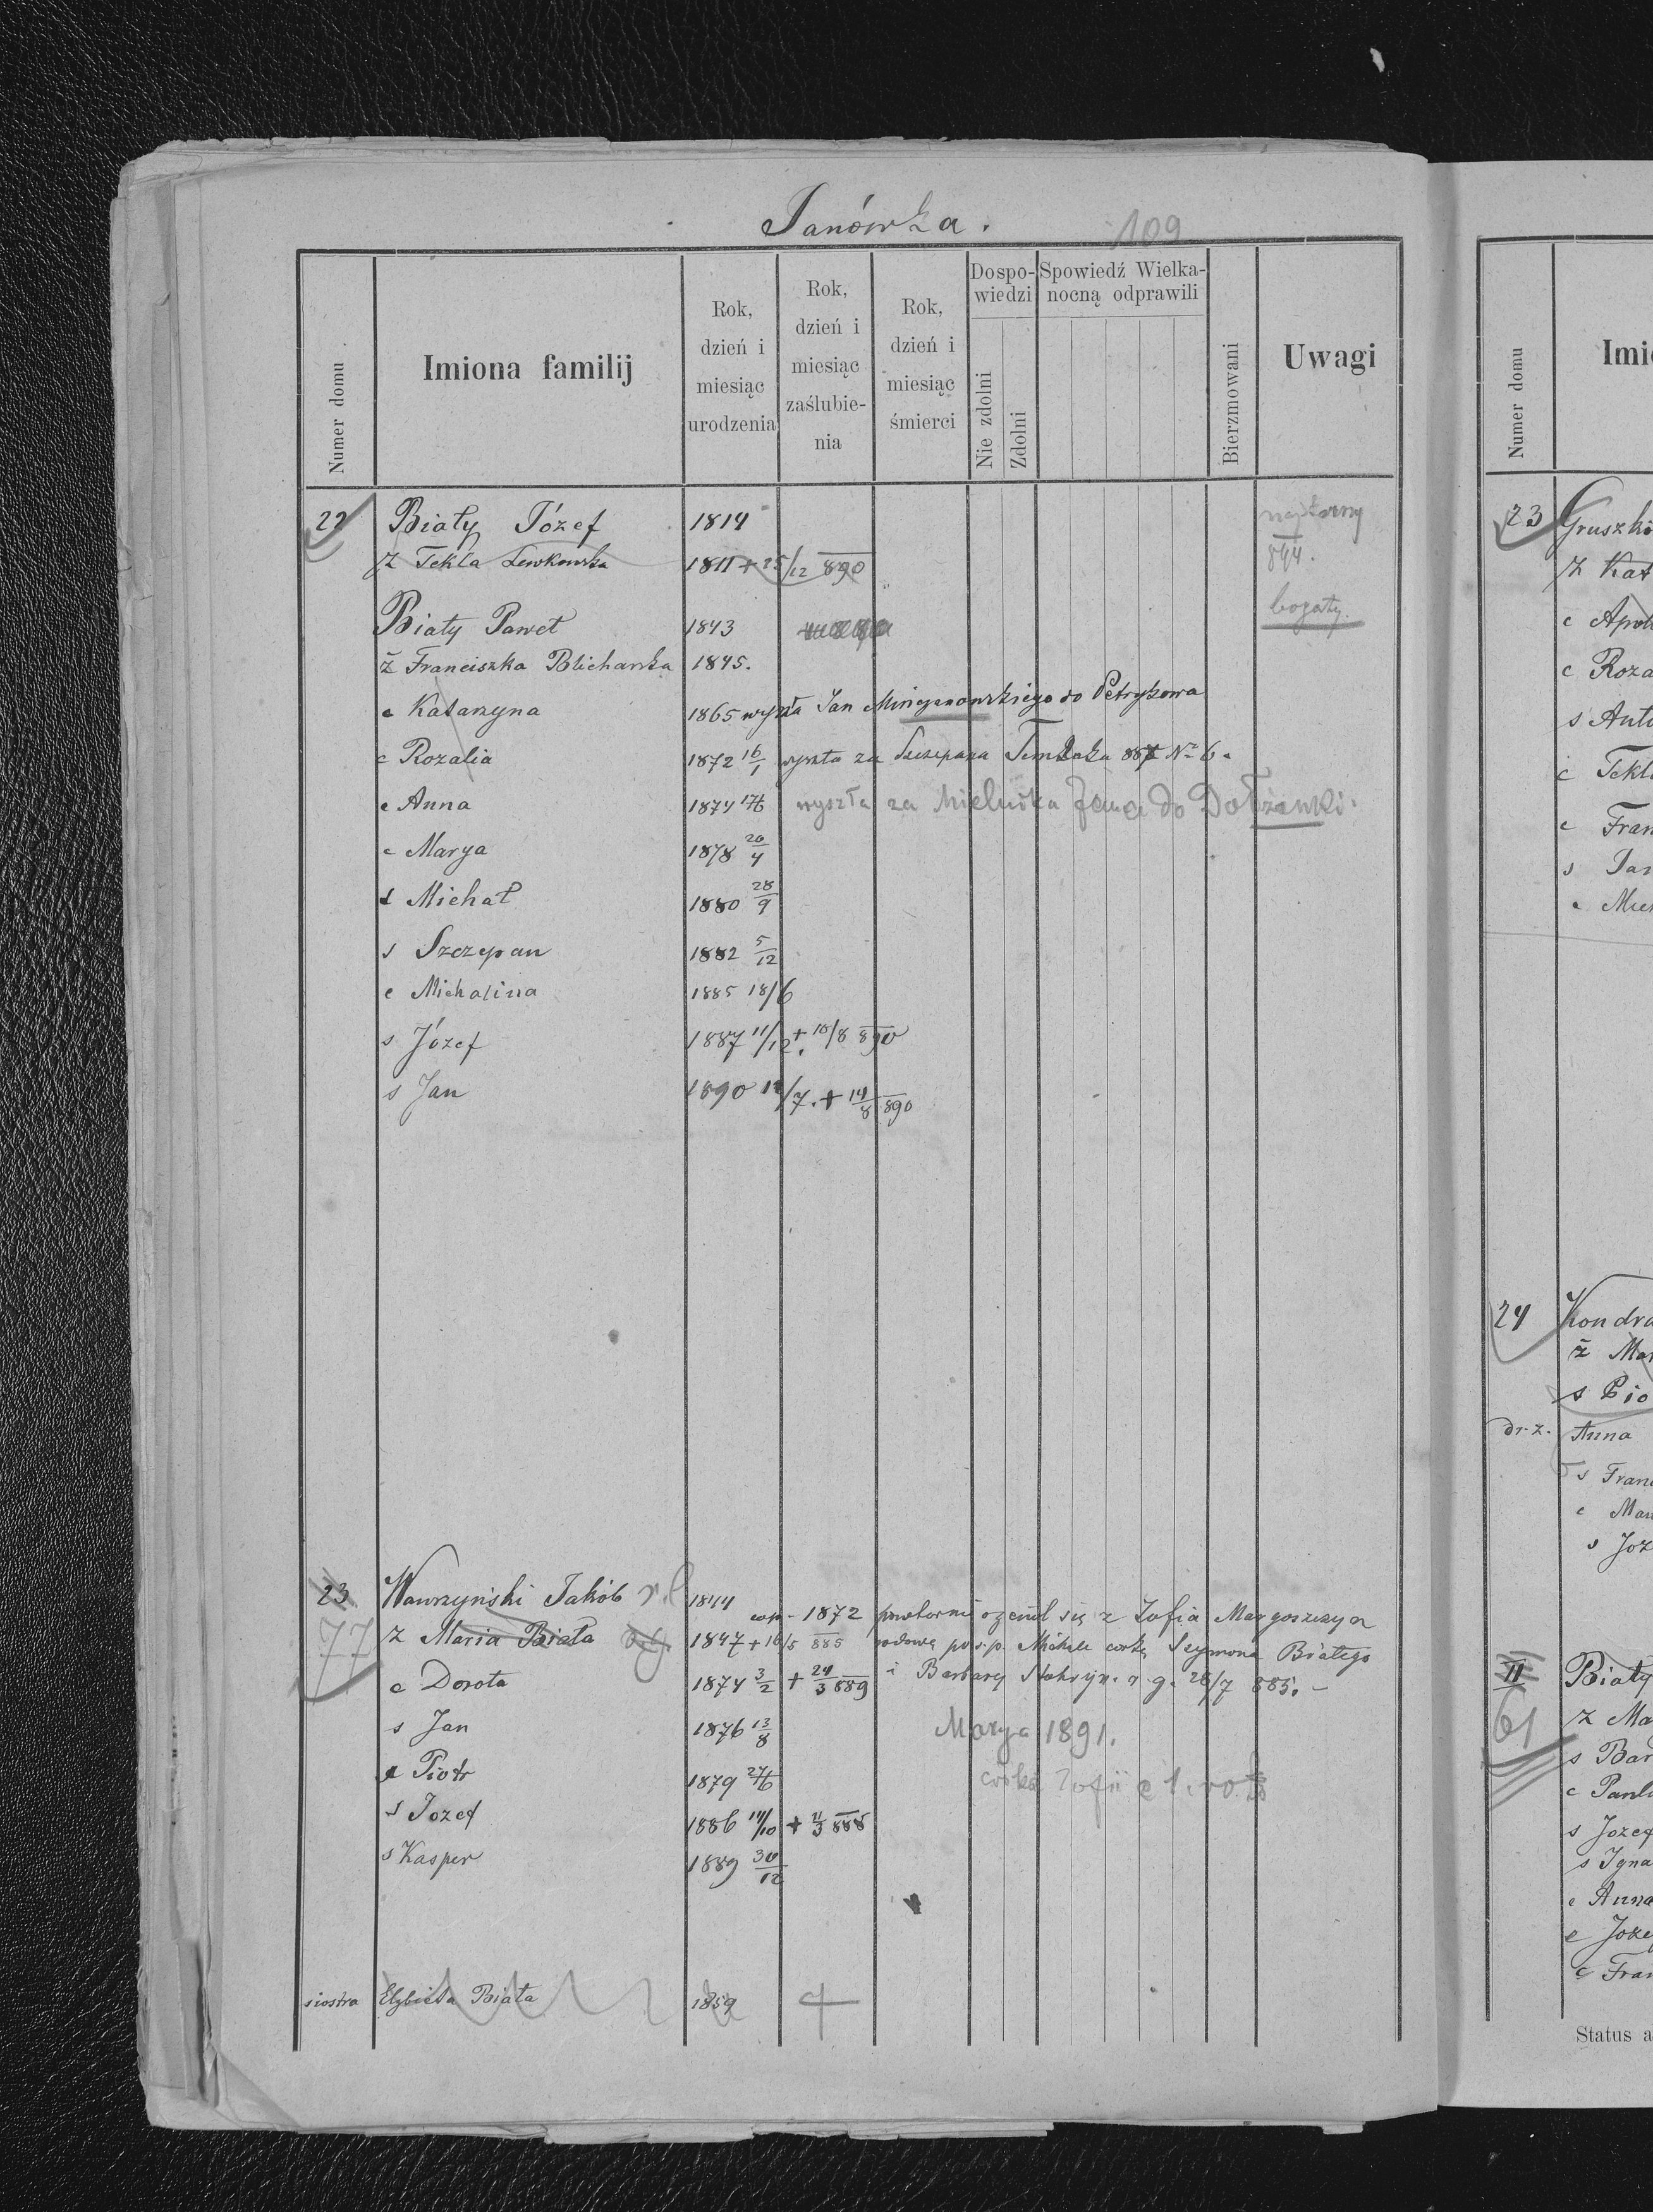 Janówka.
109
Numer domu
Imiona familij
Rok, dzień i miesiąc urodzenia
Rok, dzień i miesiąc zaślubie-nia
Rok, dzień i miesiąc śmierci
Dospo-wiedzi
Nie zdolni
Zdolni
Spowiedź Wielka-nocną odprawili
Bierzmowani
Uwagi
22 Biały Józef 1814
ż Tekla Lewkowska 1811 + 25/12 890
844.
bogaty.
Biały Paweł 1843
ż Franciszka Blicharska 1845.
c Katarzyna 1865 wyszła Jan do Petrykowa
c Rozalia 1872 16/1 wyszła za Szczepana No 6.
c Anna 1874 17/6 wyszła za do Dołżanki.
c Marya 1878 20/4
s Michał 1880 28/9
s Szczepan 1882 5/12
c Michalina 1885 18/6
s Józef 1887 11/12. + 10/8 890
s Jan 1890 12/7. + 14/8 890
23 Wawrzyński Jakób r.l 1844
77
cop- 1872 powtornie ożenił się z Zofia Margoszczyn
ż Maria Biała 1847 + 16/5 885 wdową po ś.p. Michale corką Szymona Białego
c Dorota 1874 3/2 + 24/3 889 i Barbary 28/7 885. –
s Jan 1876 13/8 Marya 1891.
s Piotr 1879 27/6 córka Zofii
s Jozef 1886 14/10 + 11/3 888
s Kasper 1889 30/12
siostra Elżbieta Biała 1859
Numer domu
Imi
23 Gruszk
ż Kat
c Apol
c Roza
s Anto
c Tekl
c Fran
s Jan
24 Kondra
ż Mar
s Pio
dr. ż. Anna
s Fran
c Mar
s Joz
II Biały
61
ż Ma
s Bar
c Paul
s Jozef
s Igna
c Anna
c Joze
c Fran
Status a